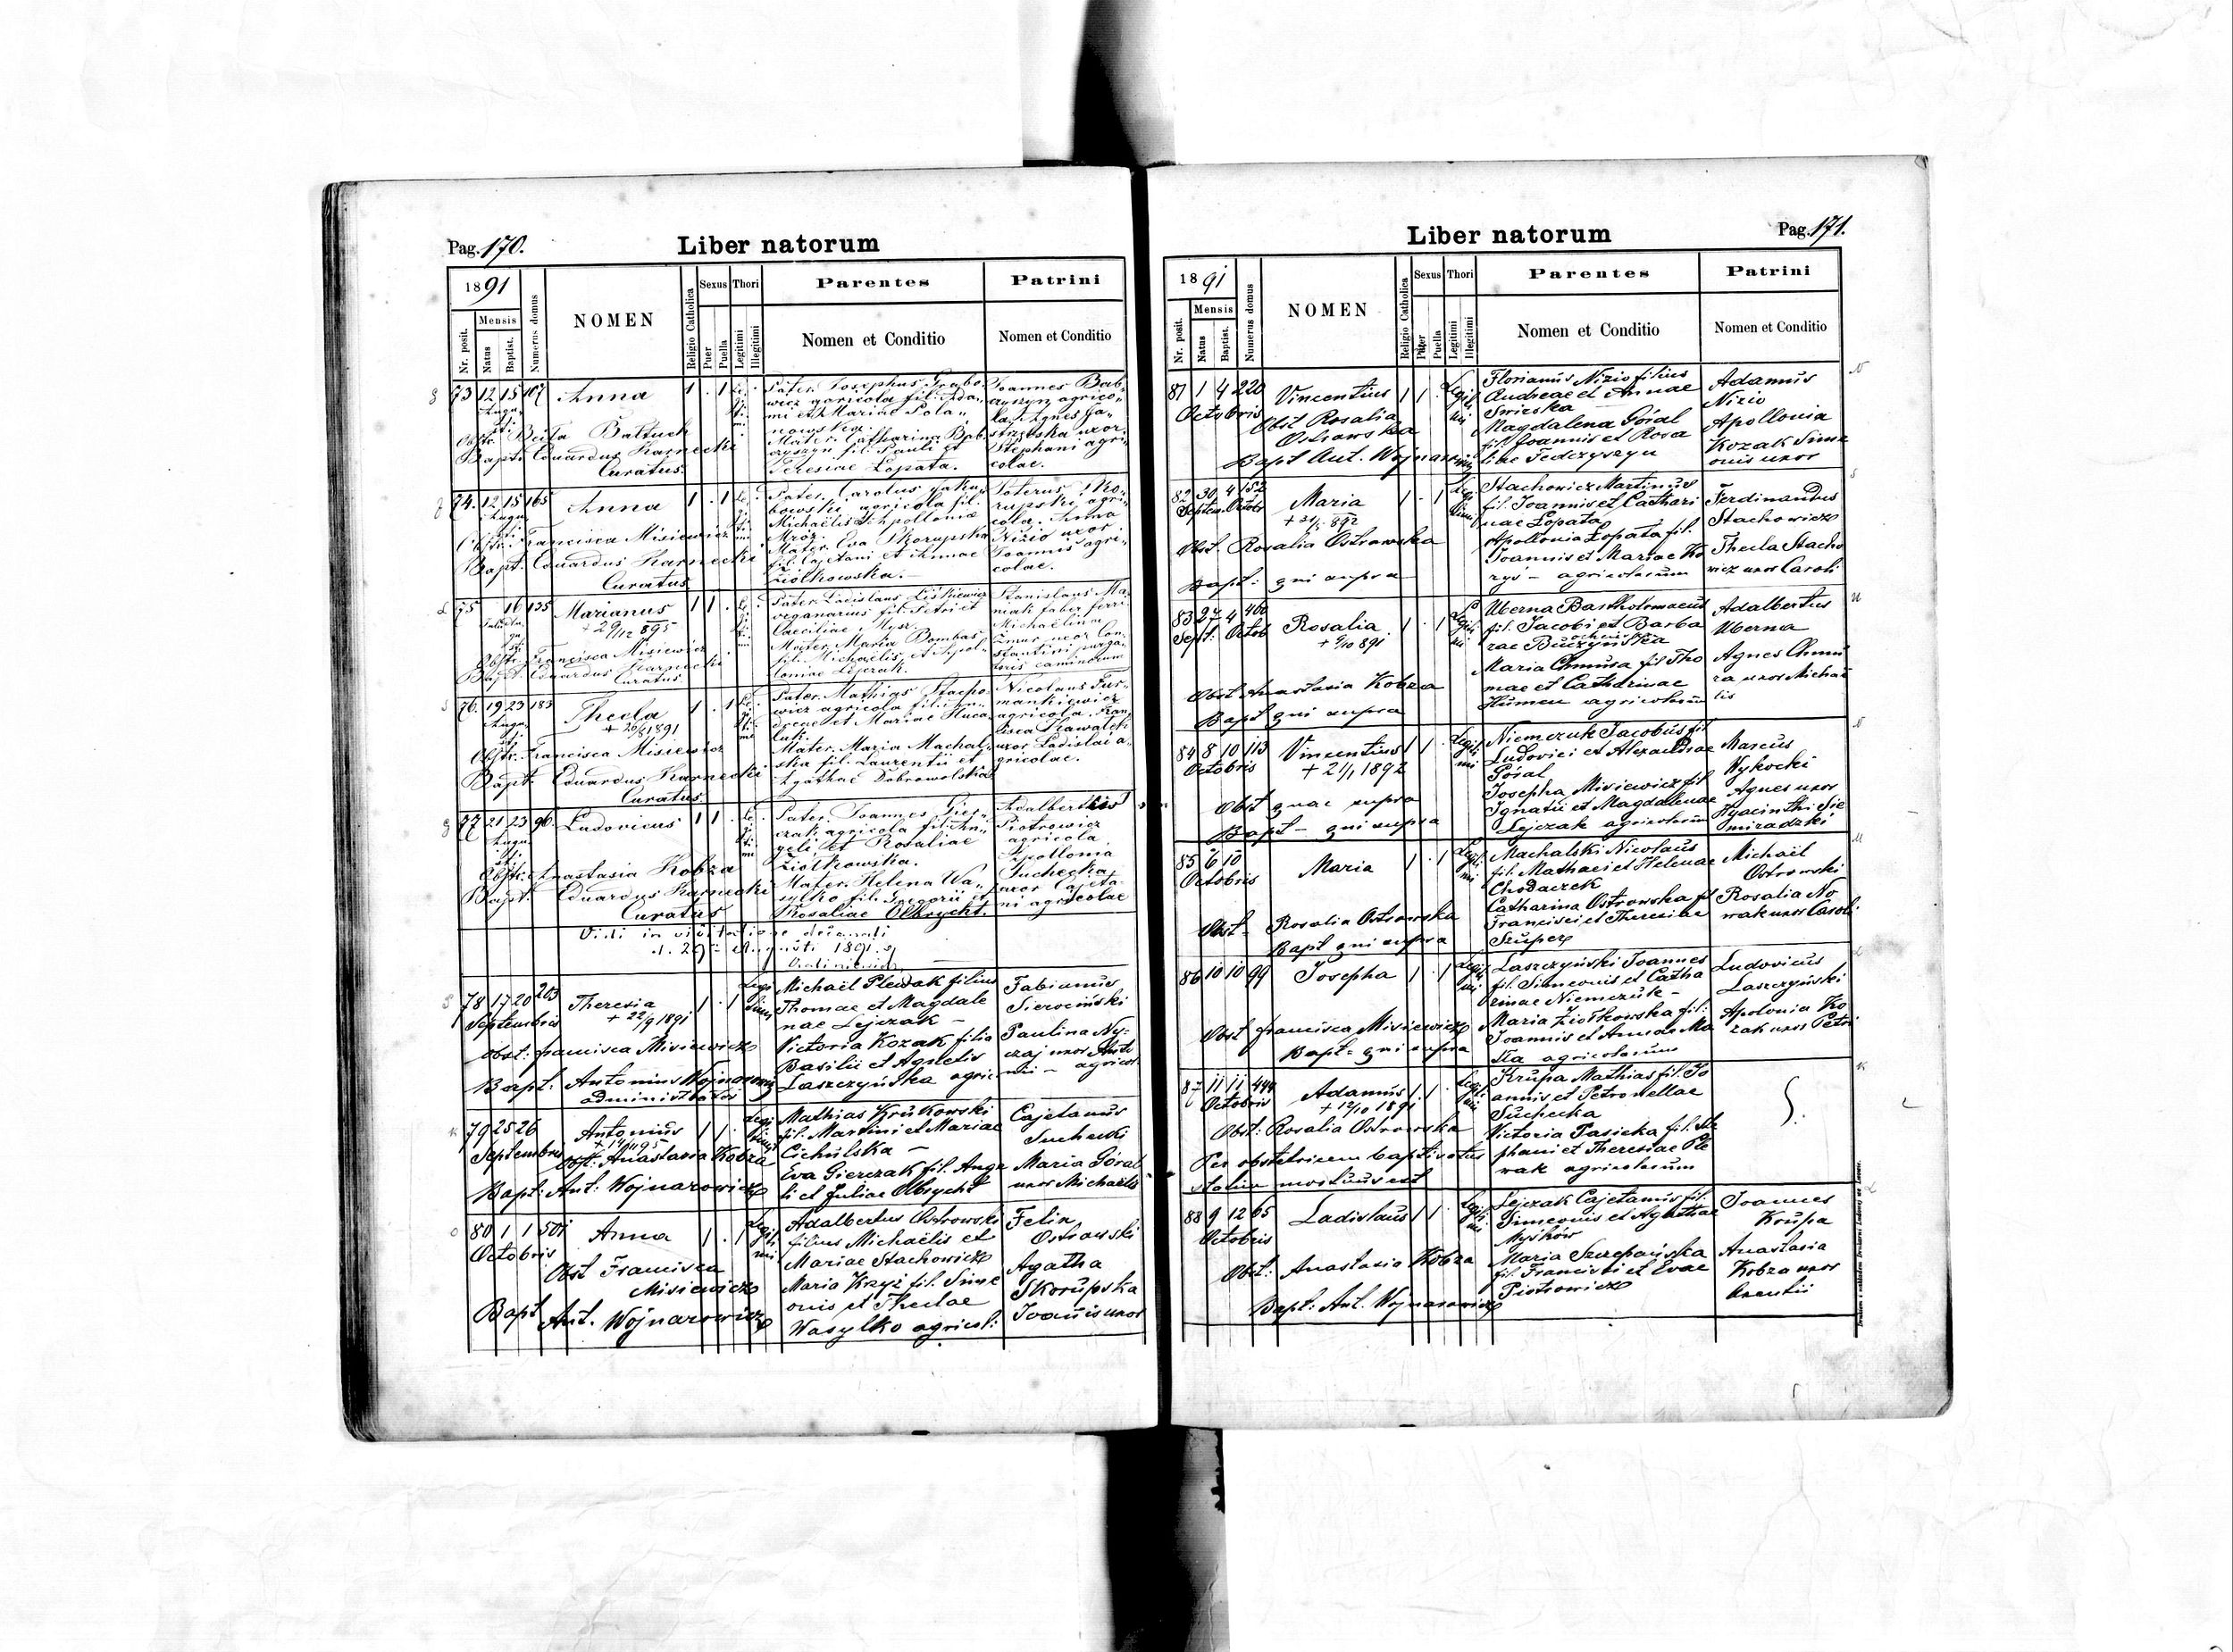 Pag. 170.
Liber natorum
1891
Nr. posit.
Mensis
Natus
Baptist.
Numerus domus
NOMEN
Religio Catholica
Sexus
Puer
Puella
Thori
Legitimi
Illegitimi
Parentes
Nomen et Conditio
Patrini
Nomen et Conditio
73 12 15 107 Anna 1 . 1
Obstr. Beila Baltuch
Bapt. Eduardus Karnecki
Curatus
Pater. Josephus Grabo-
wicz agricola fil. Ada-
mi et Marine Pola-
nowska.
Mater. Catharina Bab-
czyszyn fil. Pauli et
Teresiae Łopata.
Joannes Bab-
czyszyn agrico-
la. Agnes
uxor
Stephani agri-
colae.
74. 12 15 165 Anna 1 . 1
Obstr. Francisca Misiewicz
Bapt. Eduardus Karnecki
Curatus
Pater. Carolus Jaku-
bowski, agricola fil.
Michaëlis et Apolloniæ
Mróz.
Mater. Eva Skorupska
fil. Cajetani et Annae
Ziółkowska.
rupski agri-
cola. Anna
Nizio uxor
Joannis agri-
colae.
75 16 135 Marianus 1 1 .
+ 29/12 895
Obstr. Francisca Misiewicz
Bapt. Eduardus Karnecki
Curatus
Pater. Ladislaus Liśkiewicz
organarius fil. Petri et
Caeciliae Mysz.
Mater. Maria Bombas
fil. Michaëlis et Apol-
loniae Lejczak.
Stanislaus Ma-
niak faber ferri
Michaëlina
Żmur uxor Con-
stantini purga-
toris caminorum
76. 19 23 183 Thecla 1 . 1
+ 26/8 1891
Obstr. Francisca Misiewicz
Bapt. Eduardus Karnecki
Curatus
Pater. Mathias Stacho-
wicz agricola fil. An-
dreae et Mariae Huca-
luk.
Mater. Maria Machal-
ska fil. Laurentii et
Agathae Dobrowolska
Nicolaus Fur-
mankiewicz
agricola. Fran-
cisca Kowalska
uxor Ladislai a-
gricolae.
77 21 23 96 Ludovicus 1 1 .
Obstr. Anastasia Kobza
Bapt. Eduardus Karnecki
Curatus
Pater. Joannes Gier-
czak agricola fil. An-
geli et Rosaliae
Ziółkowska.
Mater. Helena Wa-
sylko fil. Gregorii et
Rosaliae Olbrycht.
Adalbertus
Piotrowicz
agricola
Apollonia
Suchecka
uxor Cajeta-
ni agricolae
Vidi in visitatione decanali
d. 29 Augusti 1891.
78 17 20 203 Theresia 1 . 1 Legi
timi
Septembris
+ 22/9 1891
Obst: Francisca Misiewicz
Bapt: Antonius Wojnarowicz
administrator
Michaël Plewak filius
Thomae et Magdale
nae Lejczak –
Victoria Kozak filia
Basilii et Agnetis
Laszczyńska agric
Fabianus
Sierociński
Paulina Ny-
czaj uxor Anto
nii – agricol.
79 25 26 Antonius 1 1 . Legi
timi
Septembris
Obst: Anastasia Kobza
Bapt: Ant: Wojnarowicz
Mathias Krukowski
fil. Martini et Mariae
Cichulska –
Eva Gierczak fil. Ange
li et Juliae Olbrycht
Cajetanus
Suchecki
Maria Góral
uxor Michaëlis
80 1 1 501 Anna 1 . 1 Legi
timi
Octobris
Obst Francisca
Misiewicz
Bapt Ant. Wojnarowicz
Adalbertus Ostrowski
filius Michaëlis et
Mariae Stachowicz
Maria Krzyż fil. Sime
onis et Theclae
Wasylko agricol:
Felix
Ostrowski
Agatha
Skorupska
Joannis uxor
Pag. 171.
Liber natorum
1891
Nr. posit.
Mensis
Natus
Baptist.
Numerus domus
NOMEN
Religio Catholica
Sexus
Puer
Puella
Thori
Legitimi
Illegitimi
Parentes
Nomen et Conditio
Patrini
Nomen et Conditio
81 1 4 220 Vincentius 1 1 . Legiti
mi
Octobris
Obst Rosalia
Ostrowska
Bapt Ant. Wojnarowicz
Florianus Nizio filius
Andreae et Annae
Świeska
Magdalena Góral
fil. Joannis et Rosa
liae Fedczyszyn
Adamus
Nizio
Apollonia
Kozak Sime
onis uxor
82 30 4 152 Maria 1 . 1
Septem. Octobr
Obst. Rosalia Ostrowska
Bapt: qui supra
Stachowicz Martinus
fil. Joannis et Cathari
nae Łopata
Apollonia Łopata fil.
Joannis et Mariae Ko
ryś – agricolarum
Ferdinandus
Stachowicz
Thecla Stacho
wicz uxor Caroli
83 27 4 460 Rosalia 1 . 1
Sept. Octob
+ 9/10 891
Obst Anastasia Kobza
Bapt qui supra
Uberna Bartholomaeus
fil. Jacobi et Barba
rae
Maria Chmura fil Tho
mae et Catharinae
Humen agricolarum
Adalbertus
Uberna
Agnes Chmu
ra uxor Michaë
lis
84 8 10 113 Vincentius 1 1 . Legiti
mi
Octobris
+ 21/1 1892
Obst quae supra
Bapt – qui supra
Niemczuk Jacobus fil
Ludovici et Alexandrae
Góral
Josepha Misiewicz fil
Ignatii et Magdalenae
Lejczak agricolarum
Marcus
Wykocki
Agnes uxor
Hyacinthi Sie
miradzki
85 6 10 Maria 1 . 1
Octobris
Obst – Rosalia Ostrowska
Bapt qui supra
Machalski Nicolaus
fil. Mathaei et Helenae
Chodaczek
Catharina Ostrowska fil
Francisci et Theresiae
Szuper
Michaël
Ostrowski
Rosalia No
wak uxor Caroli
86 10 10 99 Josepha 1 . 1
Obst Francisca Misiewicz
Bapt – qui supra
Laszczyński Joannes
fil. Simeonis et Catha
rinae Niemczuk –
Maria Ziółkowska fil:
Joannis et Annae Ma
agricolarum
Ludovicus
Laszczyński
Apolonia Ko
zak uxor Petri
87 11 11 444 Adamus 1 1 .
Octobris
+ 12/10 1891
Obst: Rosalia Ostrowska
Per obstetricem baptisatus
statim mortuus est
Krupa Mathias fil. Jo
annis et Petronellae
Suchecka
Victoria Pasieka fil. Ste
phani et Theresiae Ple
wak agricolarum
88 9 12 65 Ladislaus 1 1 . Legiti
mi
Octobris
Obst: Anastasia Kobza
Bapt: Ant. Wojnarowicz
Lejczak Cajetanus fil.
Simeonis et Agathae
Myśków
Maria Szczepańska
fil. Francisci et Evae
Piotrowicz
Joannes
Krupa
Anastasia
Kobza uxor